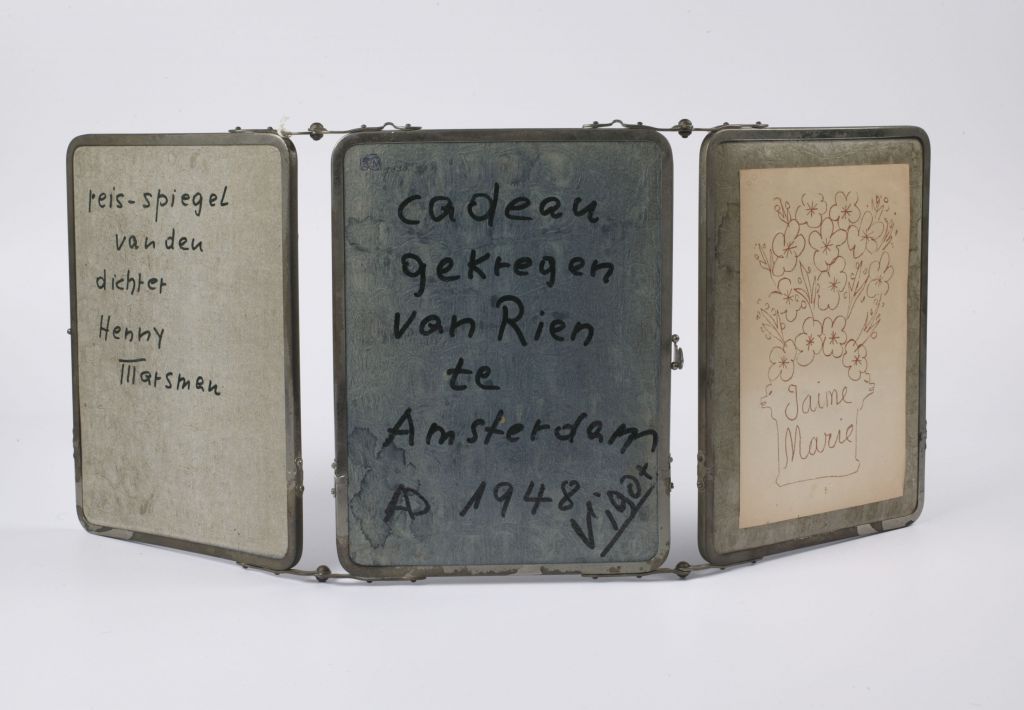 reis-spiegel
van den
dichter
Henny
Marsman
cadeau
gekregen
van Rien
te
Amsterdam
AD 1948
Vigot
Jaime
Marie